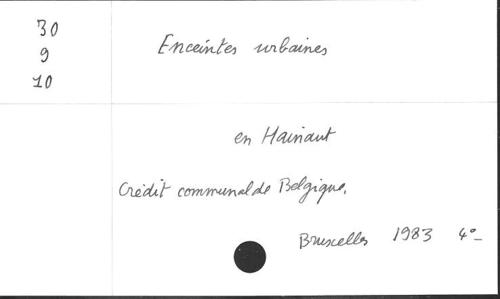 30
9
10
Enceintes urbaines
en Hainaut
Crédit communal de Belgique.
Bruxelles 1983 4°_